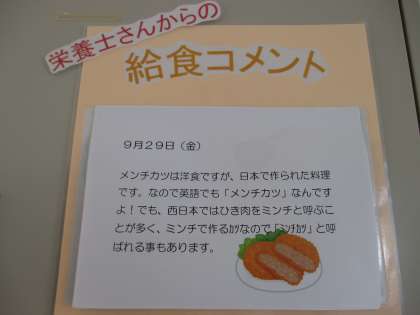 栄養士さんからの
給食コメント
９月２９日（金）
メンチカツは洋食ですが、日本で作られた料理
です。なので英語でも「メンチカツ」なんです
よ！でも、西日本ではひき肉をミンチと呼ぶこ
とが多く、ミンチで作るｶﾂなので「ﾐﾝﾁｶﾂ」と呼
ばれる事もあります。